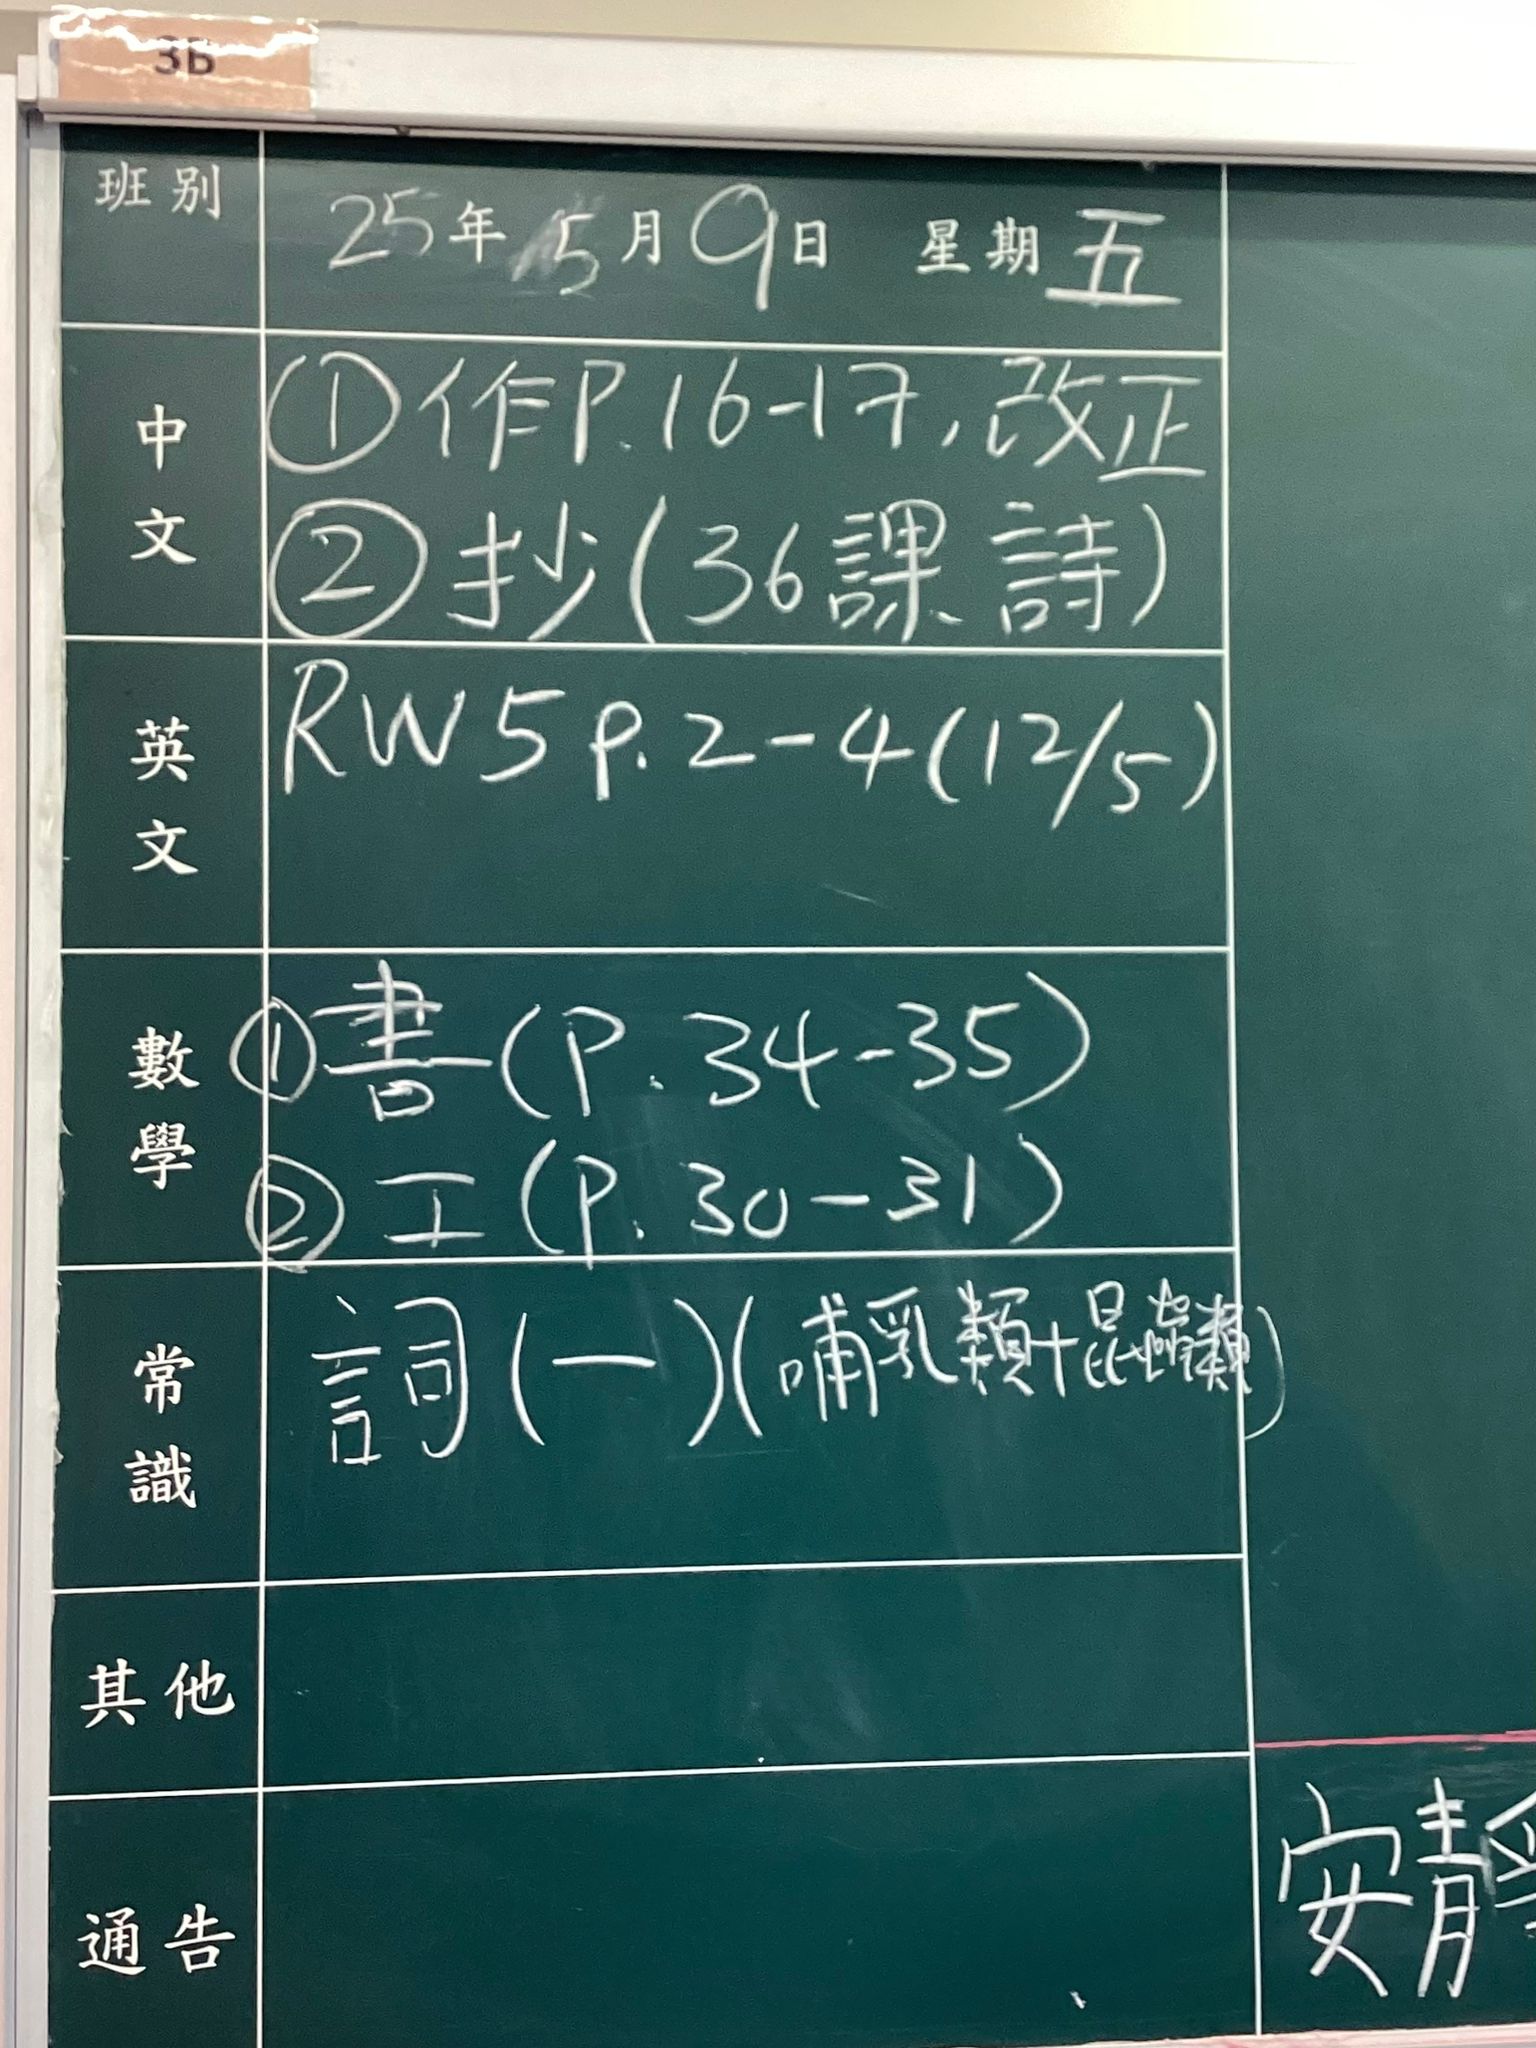 3B
班別
25年5月9日 星期五
中文
①作P.16-17,改正
②抄(36課詩)
英文
RW5 P.2-4(12/5)
數學
①書(P.34-35)
②工(P.30-31)
常識
詞(一)(哺乳類+昆蟲類)
其他
通告
安靜